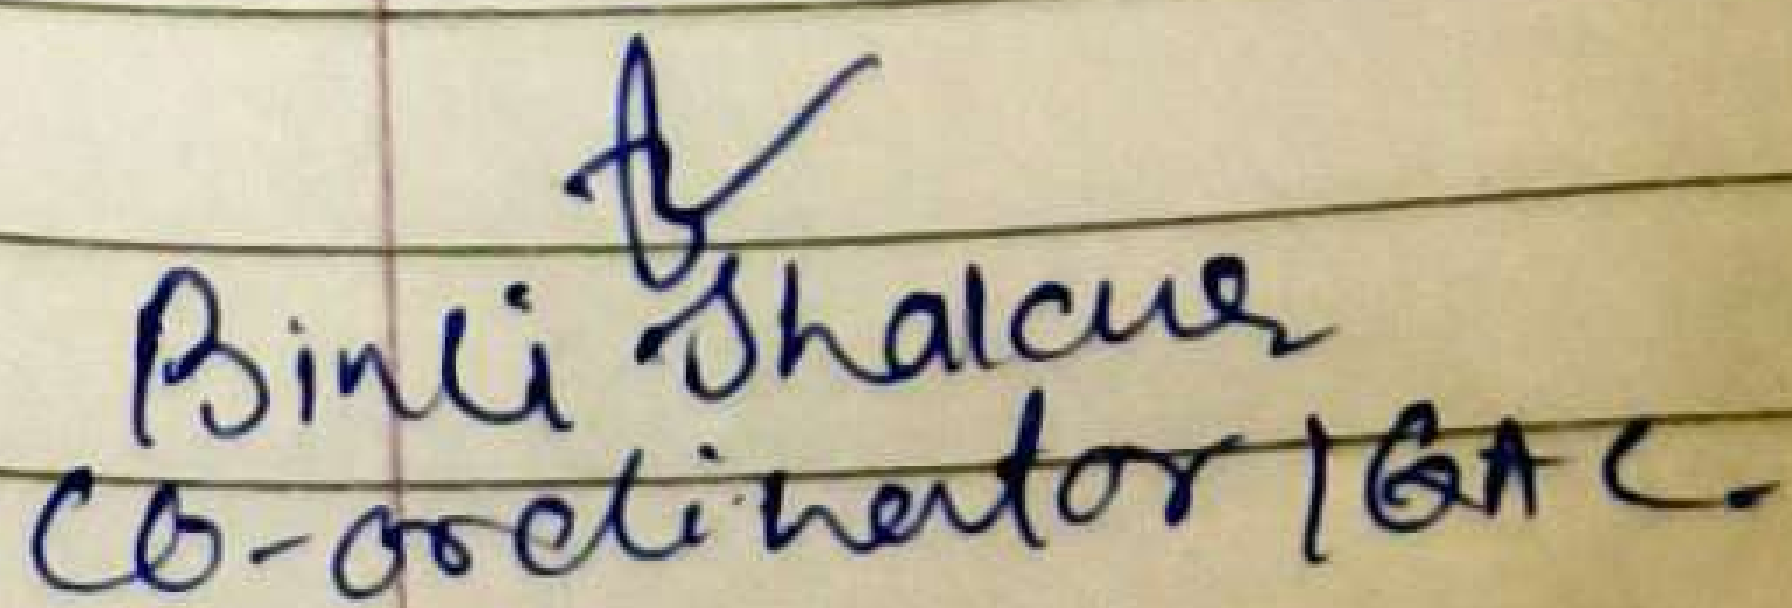 Binli Thakur
Co-ordinator IQAC.